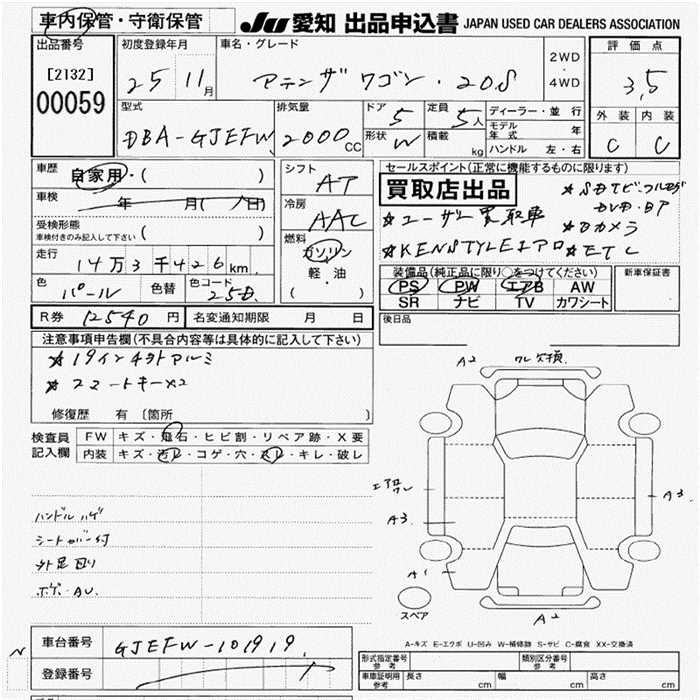 車内保管・守衛保管
JU 愛知 出品申込書 JAPAN USED CAR DEALERS ASSOCIATION
出品番号 初度登録年月 車名・グレード 2WD・4WD 評価点
[2132] 25 11月 アテンザワゴン・20S 3,5
00059
型式 排気量 ドア 定員 ディーラー・並行 外装 内装
DBA-GJEFW 2000CC 5 5人 モデル年式 年
形状 W 積載 kg ハンドル 左・右 C C
車歴 自家用・( )
シフト AT
セールスポイント(正常に機能するものに限ります)
買取店出品
★SDTVフルセグ
DVD・BT
車検 年 月( / 日)
冷房 AAC
★ユーザー買取車 ★Bカメラ
受検形態
車検付きのみ記入して下さい ( )
燃料 ガソリン
軽・油
( )
★KENSTYLEエアロ ★ETC
走行 14万3千426km
装備品(純正品に限り○をつけてください) 新車保証書
PS PW エアB AW
SR ナビ TV カワシート
色 パール 色替 色コード 25D
R券 12540円 名変通知期限 月 日
後日品
注意事項申告欄(不具合内容等は具体的に記入して下さい)
★19インチ社外アルミ
★スマートキー×2
修復歴 有〔箇所 〕
検査員記入欄
FW キズ・飛石・ヒビ割・リペア跡・X要
内装 キズ・汚レ・コゲ・穴・スレ・キレ・破レ
A2 ワレ欠損
エアロワレ
A3
A3
A1
スペア
A2
ハンドルハゲ
シートカバー付
外足回り
A-キズ E-エクボ U-凹み W-補修跡 S-サビ C-腐食 XX-交換済
車台番号 GJEFW-101919
登録番号
N
形式指定番号 参考 類別区分番号 参考
車庫証明用 参考 長さ cm 幅 cm 高さ cm